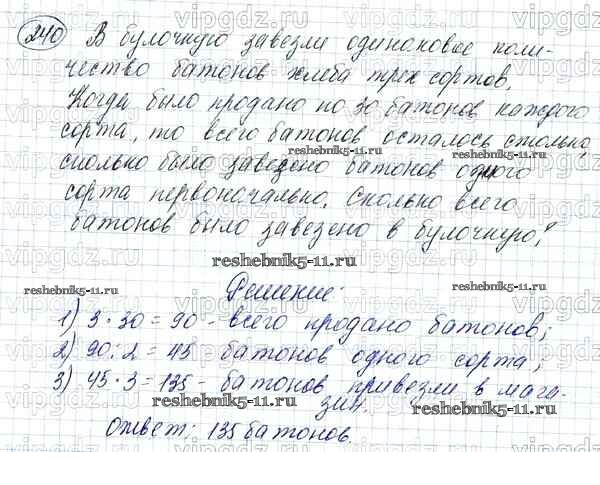 240 В булочную завезли одинаковое коли-
чество батонов хлеба трех сортов.
Когда было продано по 30 батонов каждого
сорта, то всего батонов осталось столько,
сколько было завезено батонов одного
сорта первоначально. Сколько всего
батонов было завезено в булочную?
Решение:
1) 3 · 30 = 90 - всего продано батонов;
2) 90 : 2 = 45 батонов одного сорта;
3) 45 · 3 = 135 - батонов привезли в мага-
зин.
Ответ: 135 батонов.
vipgdz.ru
reshebnik5-11.ru
reshebnik5-11.ru
reshebnik5-11.ru
reshebnik5-11.ru
reshebnik5-11.ru
reshebnik5-11.ru
reshebnik5-11.ru